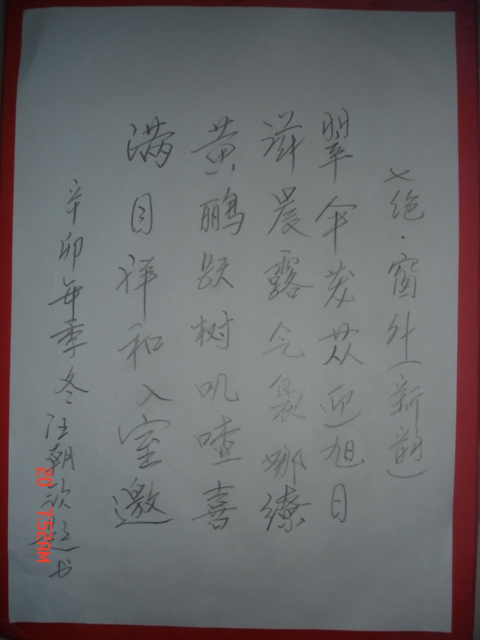 七绝·窗外(新韵)
翠伞茂苁迎旭日
滋晨露气袅娜缭
黄鹂跃树叽喳喜
满目祥和入室邀
辛卯年季冬汪朝欣题书
20 7:52AM